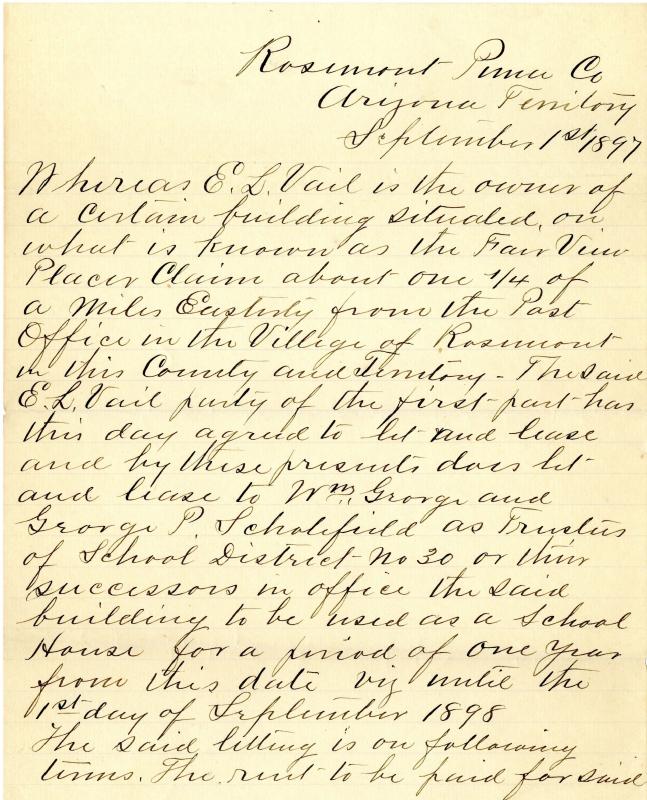 Rosemont Pima Co
Arizona Territory
September 1st 1897
Whereas E. L. Vail is the owner of
a certain building situated, on
what is known as the Fair View
Placer Claim about one 1/4 of
a Miles Easterly from the Post
Office in the Village of Rosemont
in this County and Territory - The said
E. L. Vail party of the first part has
this day agreed to let and lease
and by these presents does let
and lease to Wm. George and
George P. Scholefield as Trustees
of School District No 30 or their
successors in office the said
building to be used as a School
House for a period of one Year
from this date viz until the
1st day of September 1898
The said letting is on following
terms. The rent to be paid for said